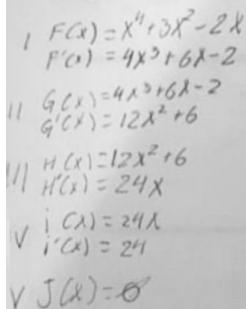 I F(x) = x⁴ + 3x² - 2x
F'(x) = 4x³ + 6x - 2
II G(x) = 4x³ + 6x - 2
G'(x) = 12x² + 6
III H(x) = 12x² + 6
H'(x) = 24x
IV i(x) = 24x
i'(x) = 24
V J(x) = 0